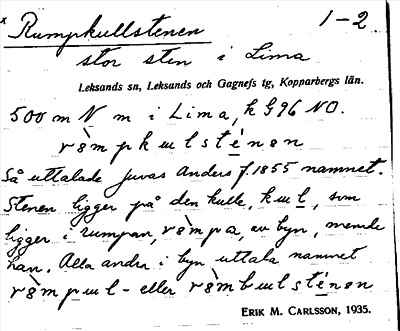 Rumpkullstenen 1-2
stor sten i Lima
Leksands sn, Leksands och Gagnefs tg, Kopparbergs län.
500 m N m i Lima, k G96 NO.
rømpkulsténøn
Så uttalade Juvas Anders f. 1855 namnet.
Stenen ligger på den kulle, kul, som
ligger i rumpan, rømpa, av byn, menade
han. Alla andra i byn uttala namnet
rømpul- eller rømbulsténøn
ERIK M. CARLSSON, 1935.